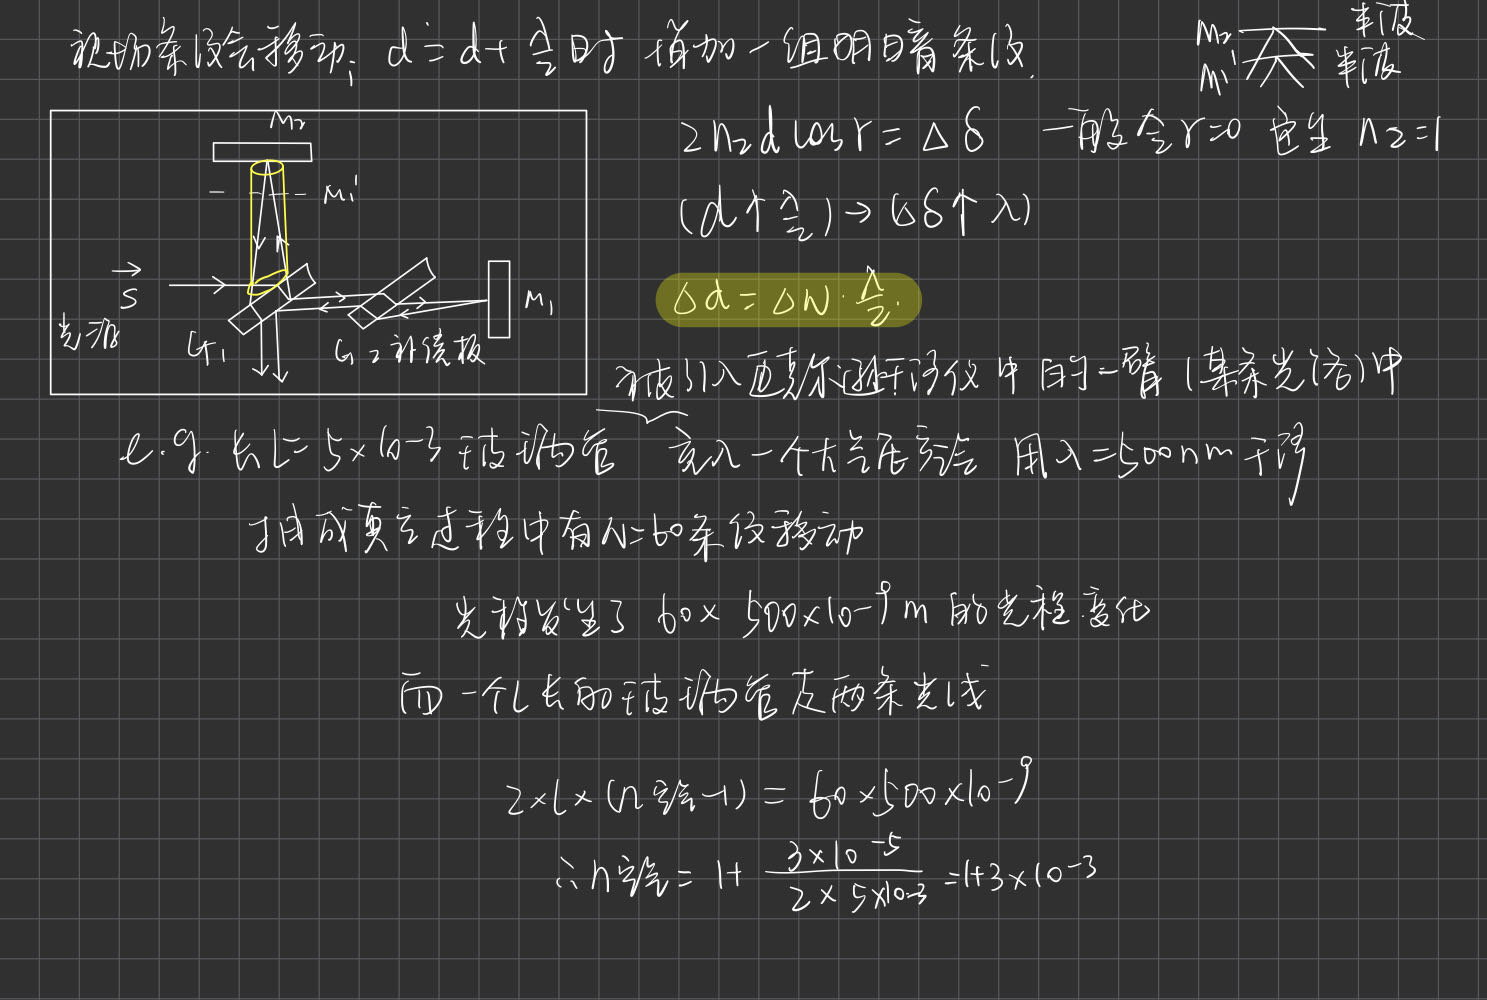 视场条纹会移动; d = d + λ/2 时 增加一组明暗条纹.
M₂ 半波
M₁' 半波
2n₂d cosr = Δδ 一般会r=0 空生 n₂=1
(d↑ λ/2) → (Δδ↑ λ)
Δd = ΔN · λ/2.
M₂
M₁'
S
光源
G₁
G₂ 补偿板
M₁
被引入迈克尔逊干涉仪中的一臂 (某条光路) 中
e.g. 长L=5×10-3 玻璃管 充入一个大气压空气 用λ=500nm干涉
抽成真空过程中有N=60条纹移动
光程发生了 60× 500×10⁻⁹m 的光程变化
而一个L长的玻璃管走两条光线
2×L×(n空气-1) = 60×500×10⁻⁹
∴n空气 = 1+ 3×10⁻⁵/2×5×10-3 =1+3×10⁻³